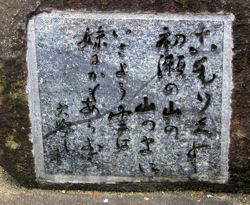 こもりくの
初瀬の山の
山のまに
いさよう雲は
妹にかもあらむ